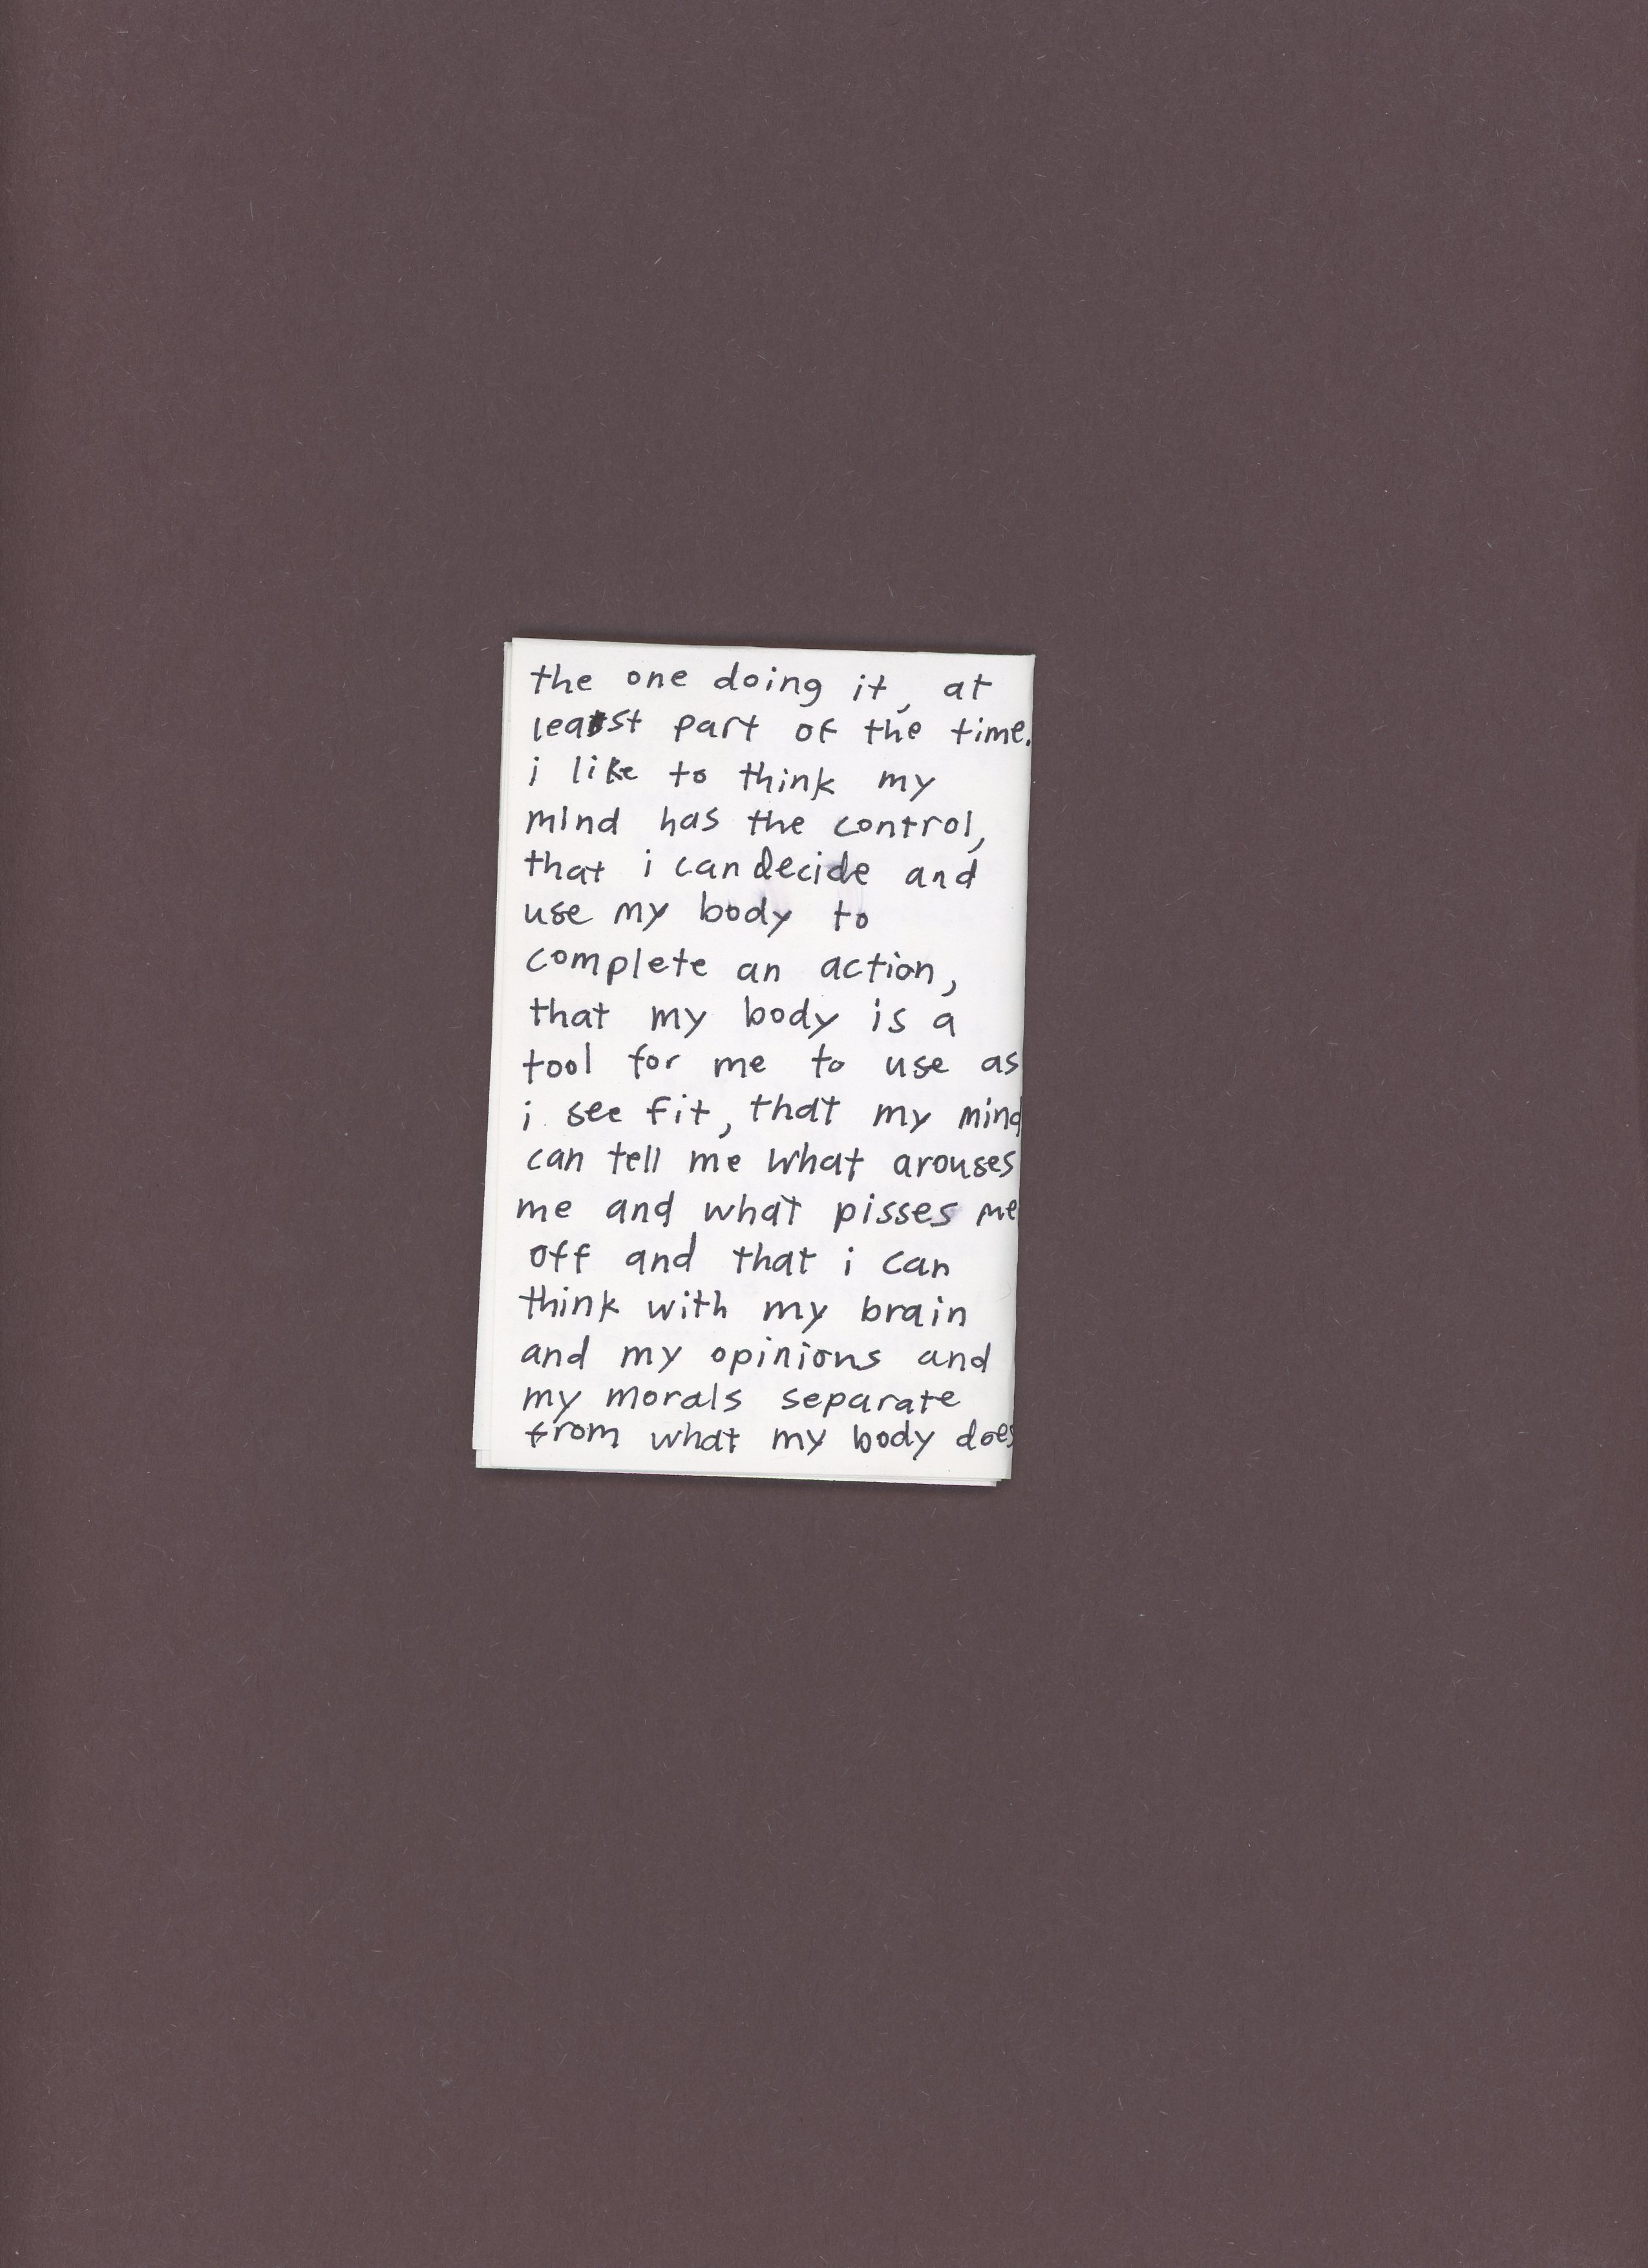 the one doing it, at
least part of the time.
i like to think my
mind has the control,
that i can decide and
use my body to
complete an action,
that my body is a
tool for me to use as
i see fit, that my mind
can tell me what arouses
me and what pisses me
off and that i can
think with my brain
and my opinions and
my morals separate
from what my body does